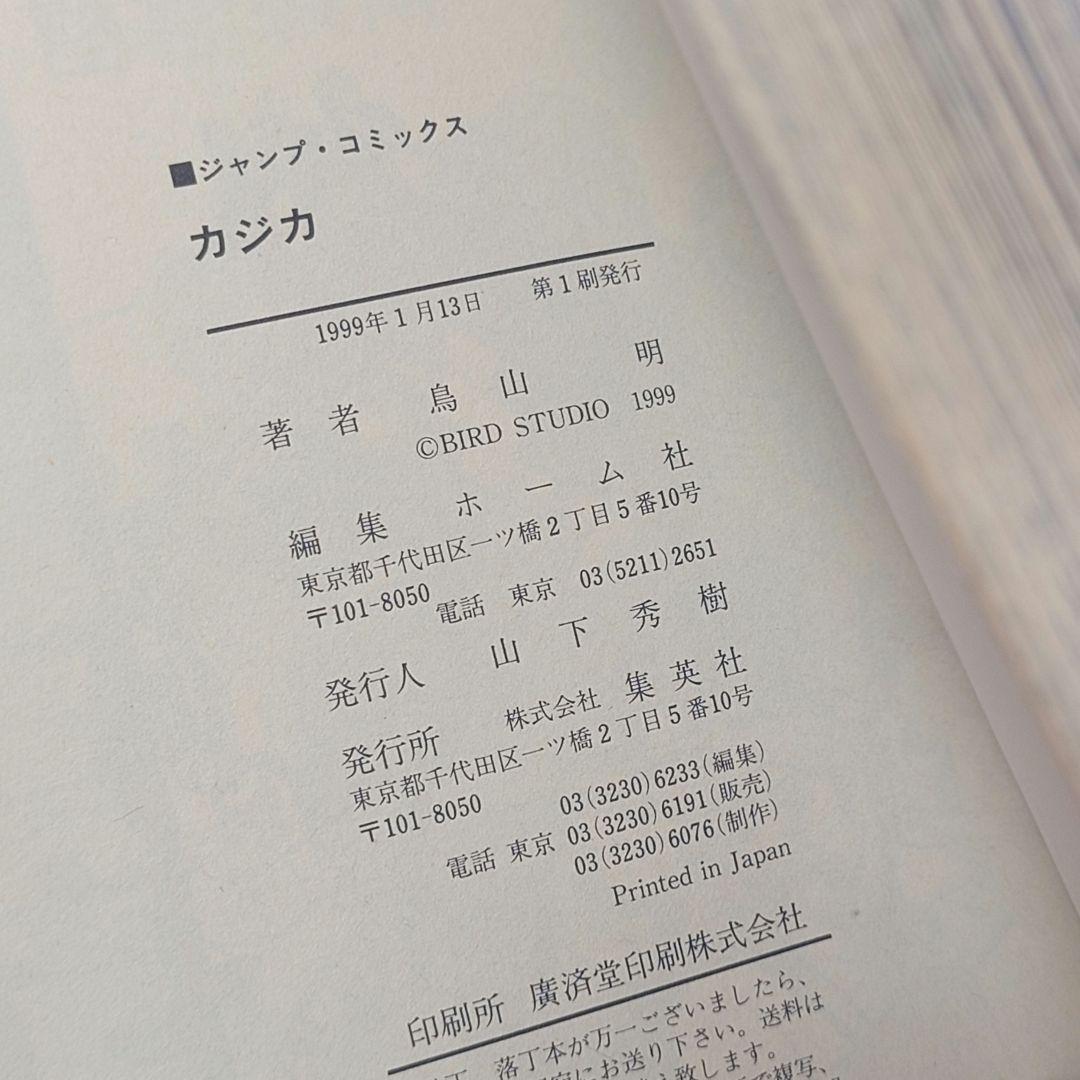 ■ジャンプ・コミックス
カジカ
1999年1月13日 第1刷発行
著者 鳥山 明
©BIRD STUDIO 1999
編集 ホーム社
東京都千代田区一ツ橋2丁目5番10号
〒101-8050
電話 東京 03(5211)2651
発行人 山下秀樹
発行所 株式会社 集英社
東京都千代田区一ツ橋2丁目5番10号
〒101-8050
03(3230)6233(編集)
電話 東京 03(3230)6191(販売)
03(3230)6076(制作)
Printed in Japan
印刷所 廣済堂印刷株式会社
落丁本が万一ございましたら、
にお送り下さい。送料は
致します。
で複写、